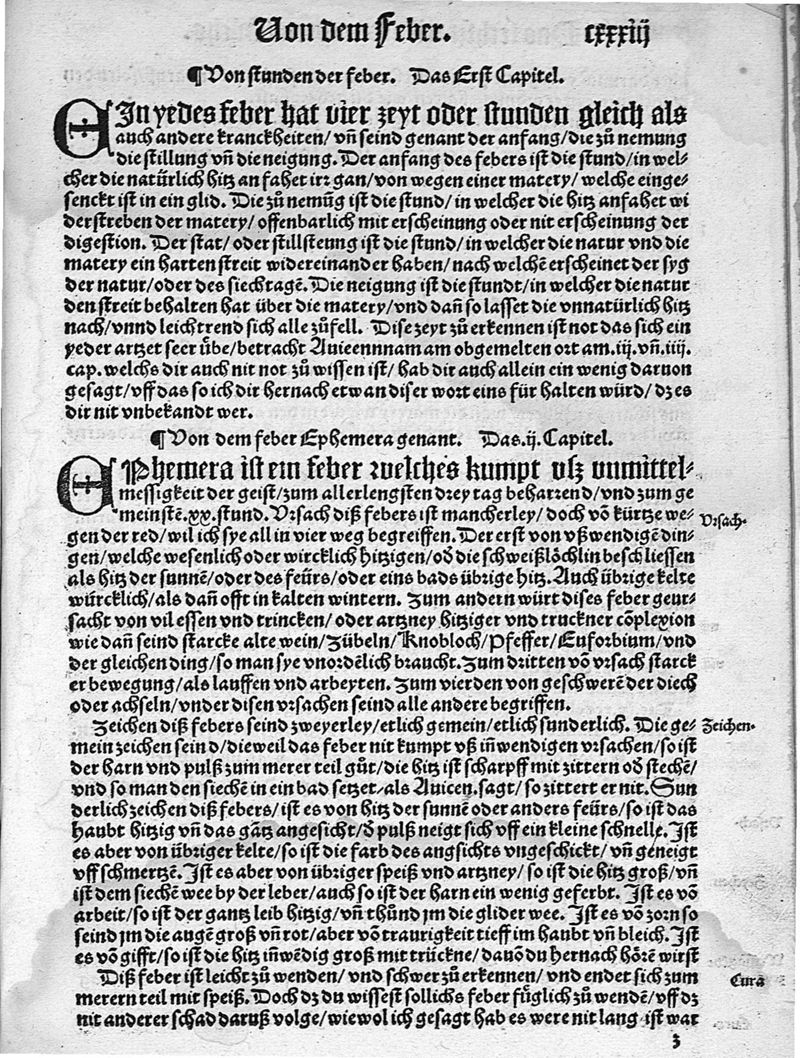 Von dem Feber. cxxxiij
¶ Von stunden der feber. Das Erst Capitel.
EIn yedes feber hat vier zeyt oder stunden gleich als
auch andere kranckheiten/ vñ seind genant der anfang/ die zů nemung
die stillung vñ die neigung. Der anfang des febers ist die stund/ in wel⸗
cher die natürlich hitz an fahet irꝛ gan/ von wegen einer matery/ welche einge⸗
senckt ist in ein glid. Die zů nemũg ist die stund/ in welcher die hitz anfahet wi
derstreben der matery/ offenbarlich mit erscheinung oder nit erscheinung der
digestion. Der stat/ oder stillsteung ist die stund/ in welcher die natur vnd die
matery ein harten streit widereinander haben/ nach welchẽ erscheinet der syg
der natur/ oder des siechtagẽ. Die neigung ist die stundt/ in welcher die natur
den streit behalten hat über die matery/ vnd dañ so lasset die vnnatürlich hitz
nach/ vnnd leichtrend sich alle zůfell. Dise zeyt zů erkennen ist not das sich ein
yeder artzet seer übe/ betracht Auicennam am obgemelten ort am .iij. vñ .iiij.
cap. welchs dir auch nit not zů wissen ist/ hab dir auch allein ein wenig daruon
gesagt/ vff das so ich dir hernach etwan diser wort eins für halten würd/ dz es
dir nit vnbekandt wer.
¶ Von dem feber Ephemera genant. Das .ij. Capitel.
EPhemera ist ein feber welches kumpt vsz vnmittel⸗
messigkeit der geist/ zum allerlengsten drey tag beharrend/ vnd zum ge
meinstẽ .xx. stund. Vrsach diß febers ist mancherley/ doch võ kürtze we⸗
Vrsach.
gen der red/ wil ich sye all in vier weg begreiffen. Der erst von vßwendigẽ din⸗
gen/ welche wesenlich oder wircklich hitzigen/ oď die schweißlöchlin beschliessen
als hitz der sunnẽ/ oder des feürs/ oder eins bads übrige hitz. Auch übrige kelte
würcklich/ als dañ offt in kalten wintern. Zum andern würt dises feber geur⸗
sacht von vil essen vnd trincken/ oder artzney hitziger vnd truckner cõplexion
wie dañ seind starcke alte wein/ Zübeln/ Knobloch/ Pfeffer/ Euforbium/ vnd
der gleichen ding/ so man sye vnordẽlich braucht. Zum dritten võ vrsach starck
er bewegung/ als lauffen vnd arbeyten. Zum vierden von geschwerẽ der diech
oder achseln/ vnder disen vrsachen seind alle andere begriffen.
Zeichen diß febers seind zweyerley/ etlich gemein/ etlich sunderlich. Die ge⸗
Zeichen.
mein zeichen seind/ dieweil das feber nit kumpt vß iñwendigen vrsachen/ so ist
der harn vnd pulß zum merer teil gůt/ die hitz ist scharpff mit zittern oď stechẽ/
vnd so man den siechẽ in ein bad setzet/ als Auicen. sagt/ so zittert er nit. Sun
derlich zeichen diß febers/ ist es von hitz der sunnẽ oder anders feürs/ so ist das
haubt hitzig vñ das gãtz angesicht/ ď pulß neigt sich vff ein kleine schnelle. Ist
es aber von übriger kelte/ so ist die farb des angsichts vngeschickt/ vñ geneigt
vff schmertzẽ. Ist es aber von übriger speiß vnd artzney/ so ist die hitz groß/ vñ
ist dem siechẽ wee by der leber/ auch so ist der harn ein wenig geferbt. Ist es võ
arbeit/ so ist der gantz leib hitzig/ vñ thůnd jm die glider wee. Ist es võ zorn so
seind jm die augẽ groß vñ rot/ aber võ traurigkeit tieff im haubt vñ bleich. Ist
es võ gifft/ so ist die hitz iñwẽdig groß mit trückne/ dauõ du hernach hörẽ wirst
Diß feber ist leicht zů wenden/ vnd schwer zů erkennen/ vnd endet sich zum
Cura
merern teil mit speiß. Doch dz du wissest sollichs feber füglich zů wendẽ/ vff dz
nit anderer schad daruß volge/ wiewol ich gesagt hab es were nit lang ist war
z